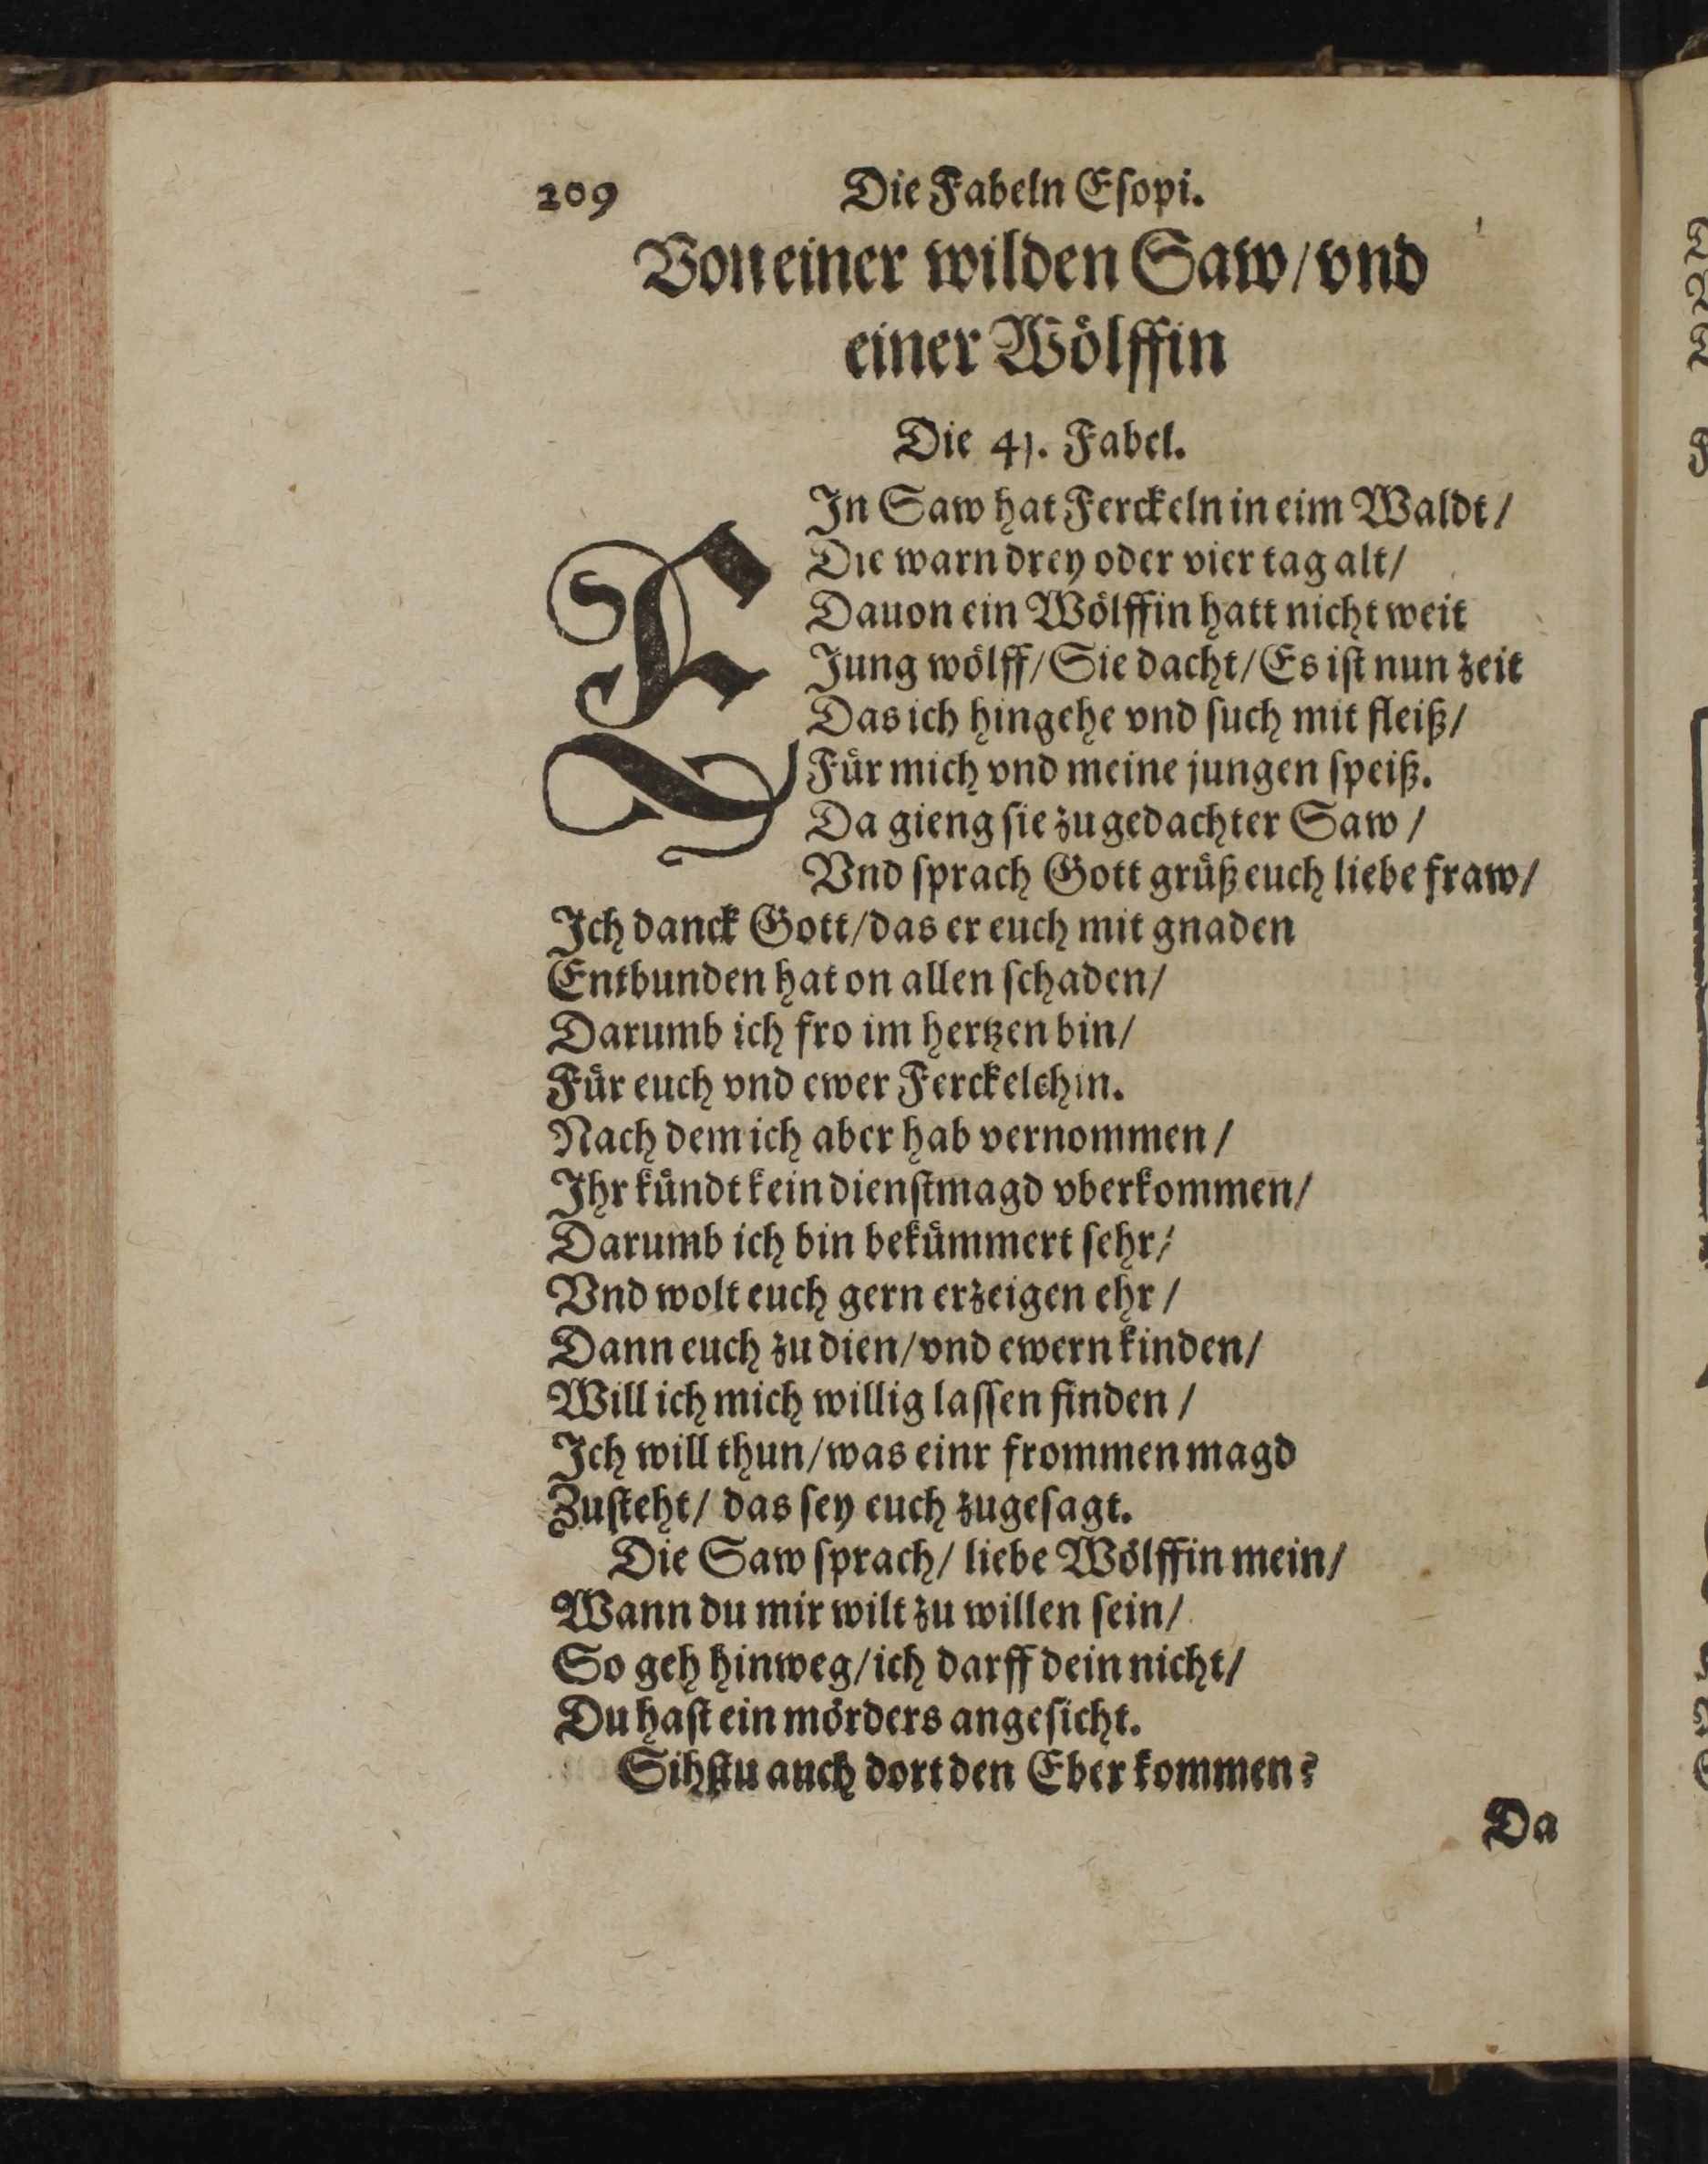 209 Die Fabeln Eſopi.
Von einer wilden Saw/ vnd
einer Woͤlffin
Die 41. Fabel.
EIn Saw hat Ferckeln in eim Waldt/
Die warn drey oder vier tag alt/
Dauon ein Woͤlffin hatt nicht weit
Jung woͤlff/ Sie dacht/ Es iſt nun zeit
Das ich hingehe vnd ſuch mit fleiß/
Fuͤr mich vnd meine jungen ſpeiß.
Da gieng ſie zu gedachter Saw/
Vnd ſprach Gott gruͤß euch liebe fraw/
Ich danck Gott/ das er euch mit gnaden
Entbunden hat on allen ſchaden/
Darumb ich fro im hertzen bin/
Fuͤr euch vnd ewer Ferckelchin.
Nach dem ich aber hab vernommen/
Ihr kuͤndt kein dienſtmagd vberkommen/
Darumb ich bin bekuͤmmert ſehr/
Vnd wolt euch gern erzeigen ehr/
Dann euch zu dien/ vnd ewern kinden/
Will ich mich willig laſſen finden/
Ich will thun/ was einr frommen magd
Zuſteht/ das ſey euch zugeſagt.
Die Saw ſprach/ liebe Woͤlffin mein/
Wann du mir wilt zu willen ſein/
So geh hinweg/ ich darff dein nicht/
Du haſt ein moͤrders angeſicht.
Sihſtu auch dort den Eber kommen?
Da